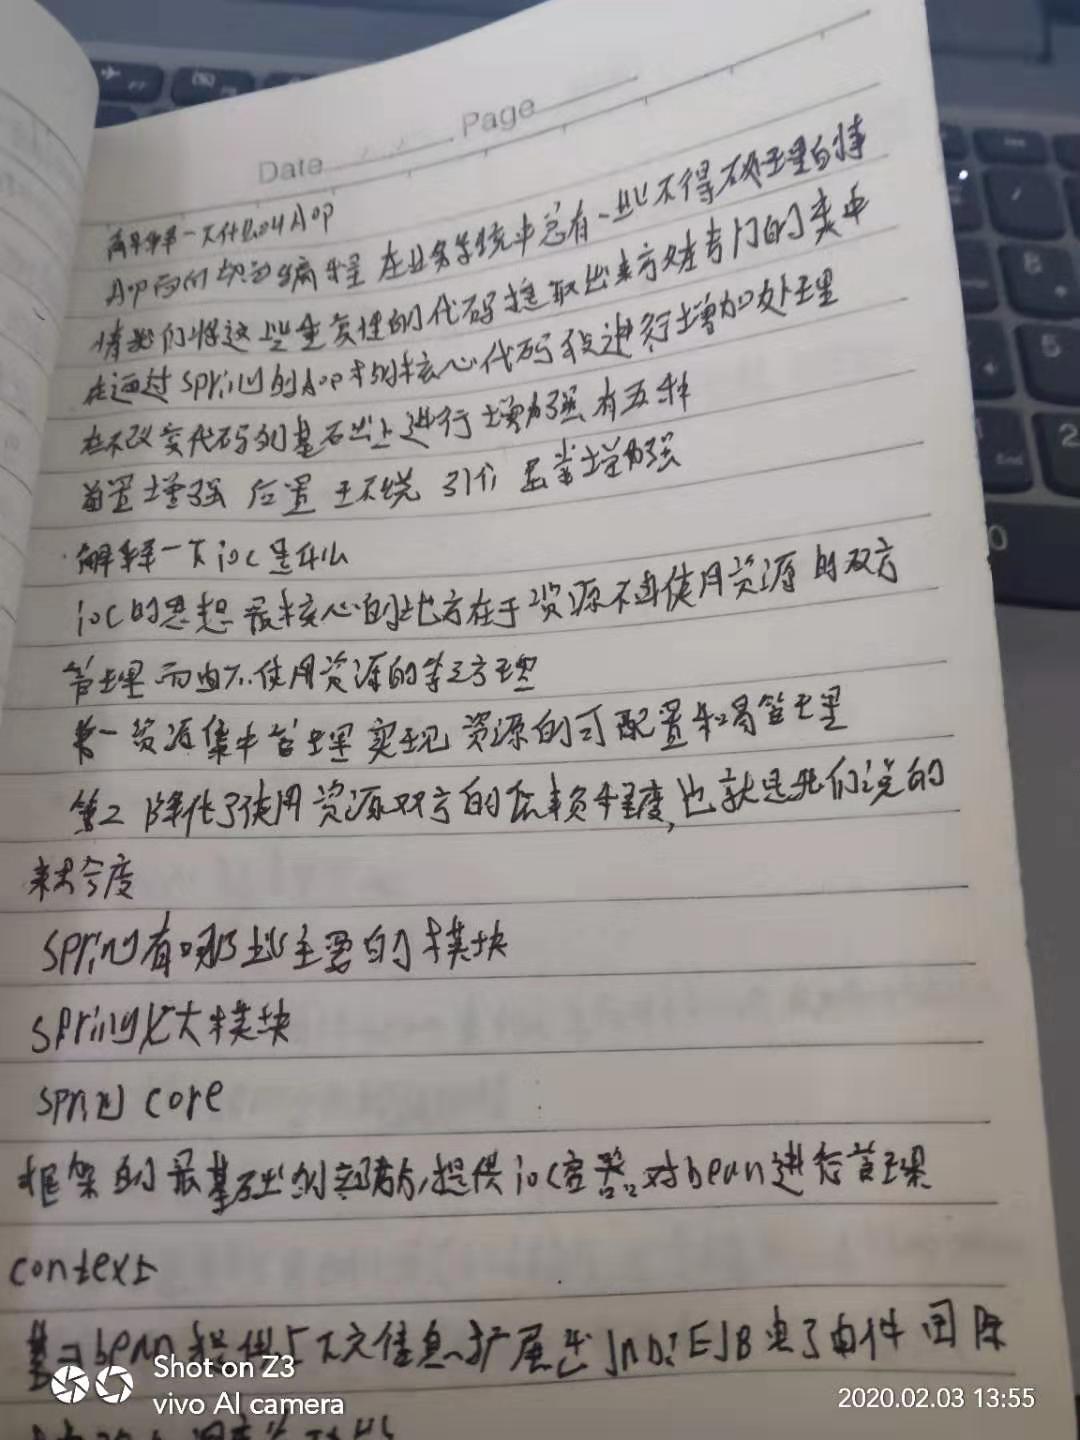 Date Page
解释一下什么叫Aop
Aop面向切面编程 在业务系统中总有一些不得不处理的事
情我们将这些重复性的代码提取出来放在专门的类中
在通过spring的Aop对核心代码段进行增加处理
在不改变代码的基础上进行增强有五种
前置增强 后置 环绕 引介 异常增强
解释一下ioc是什么
ioc的思想最核心的地方在于资源不由使用资源的双方
管理而由不使用资源的第三方管理
第一资源集中管理实现资源的可配置和易管理
第二 降低了使用资源双方的依赖程度,也就是我们说的
耦合度
spring有哪些主要的模块
spring七大模块
spring core
框架的最基础的部分,提供ioc容器,对bean进行管理
context
基于bean提供上下文信息,扩展出JNDI EJB 电子邮件 国际
Shot on Z3
vivo AI camera
2020.02.03 13:55